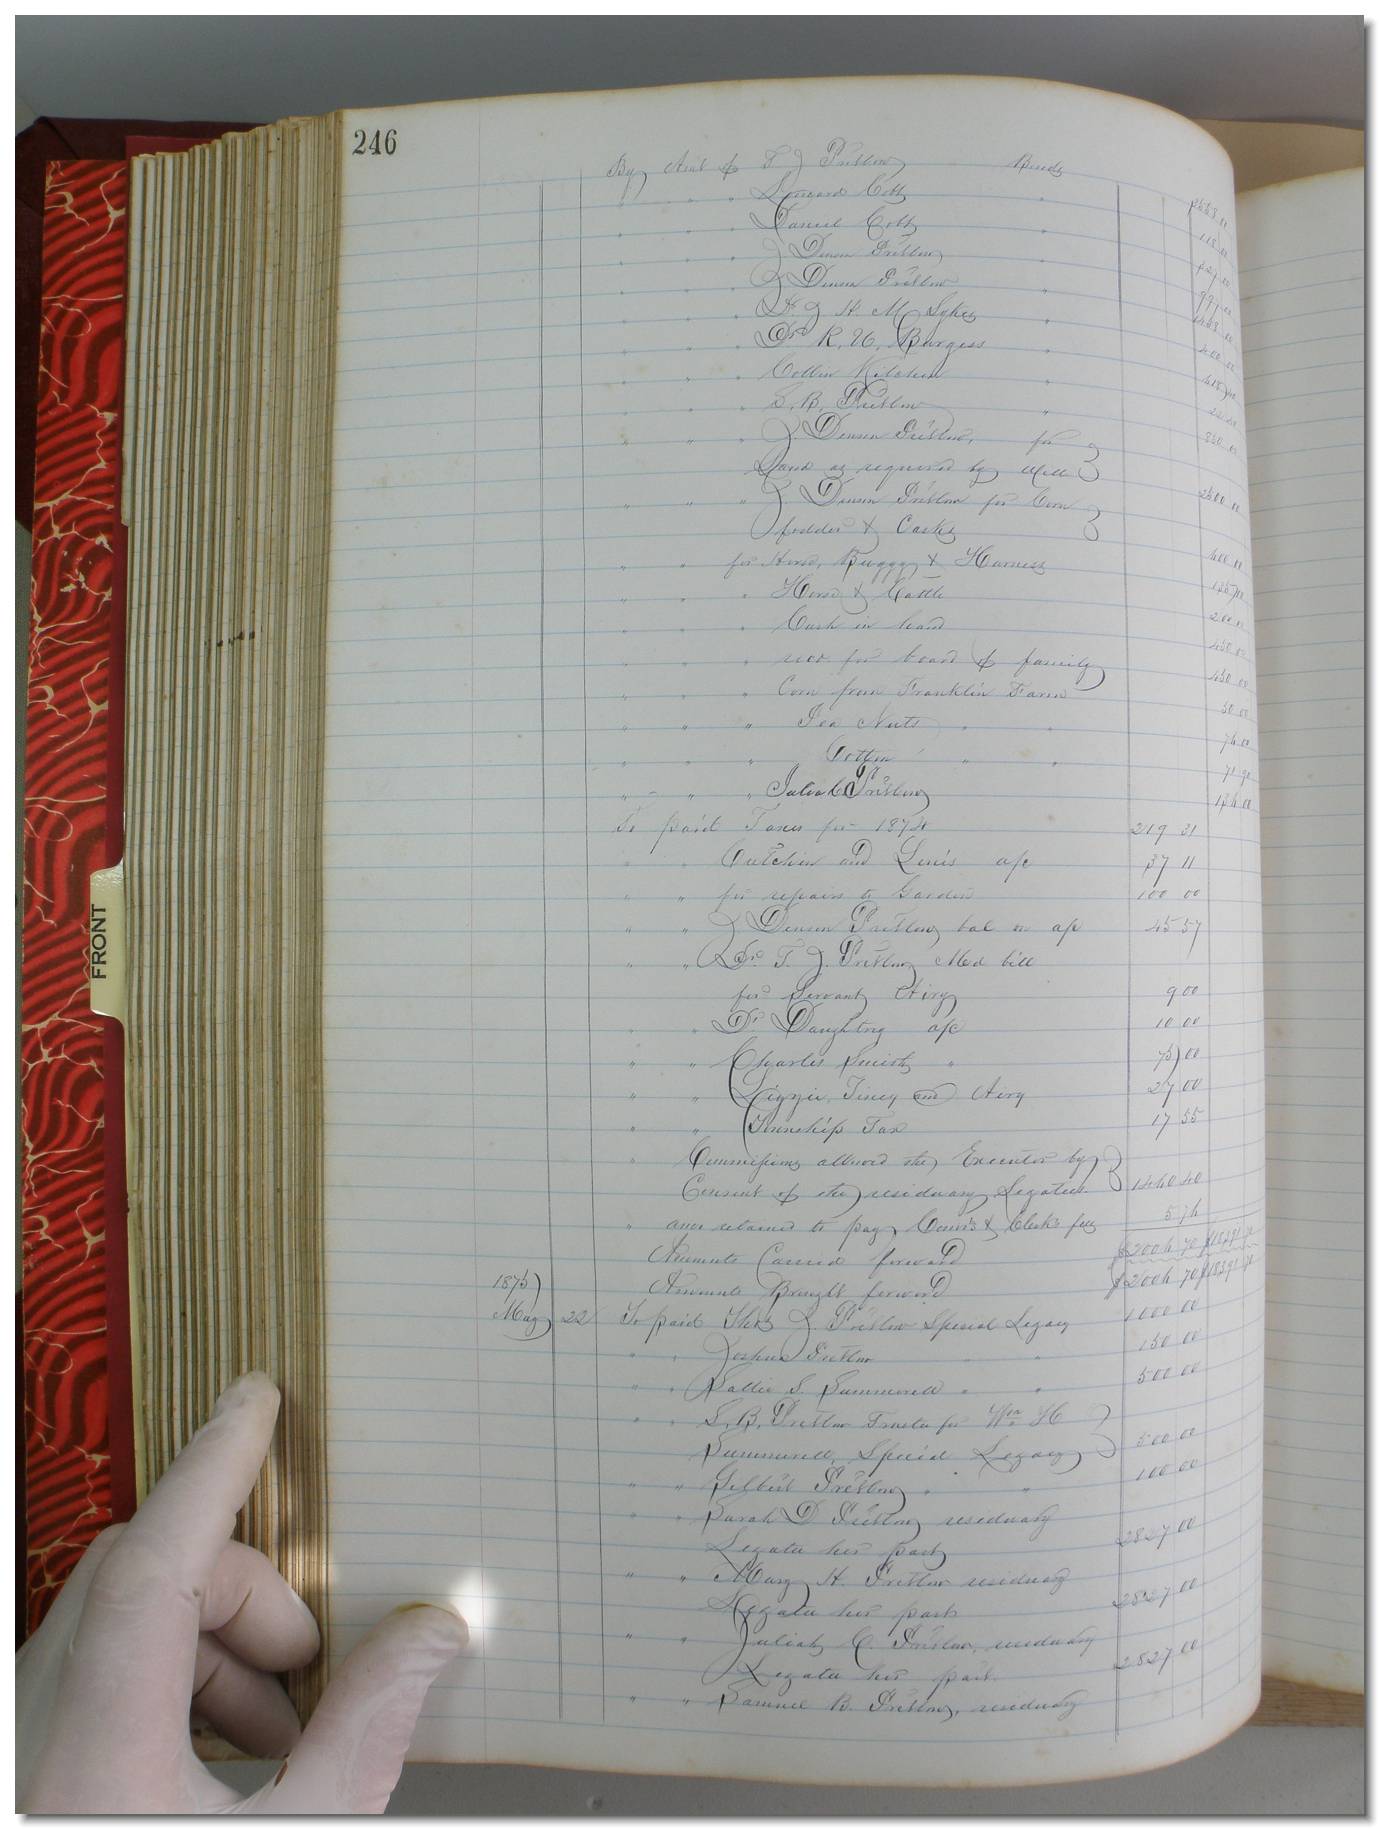 246
By Amt of T J Pretlow Bonds
" " " Leonard Cobb " 118 00
" " " Daniel Cobb "
" " " J Denson Pretlow
" " " J Denson Pretlow "
" " " H. M. Sykes "
" " " Dr R. U. Burgess "
" " " Cotton Kitchen "
" " " S. B. Pretlow "
" " " J. Denson Pretlow, for
Land as required by Will 2500 00
" " " J. Denson Pretlow for Corn
fodder & Casks 400 00
" " for Horse, Buggy & Harness
" " " Horse & Cattle 200 00
" " " Cash in hand 450 00
" " " recd for board of family 450 00
" " " Corn from Franklin Farm 50 00
" " " Pea Nuts " "
" " " Cotton " "
" " " Julia C Pretlow
To paid Taxes for 1874 219 31
" " and Lewis a/c 37 11
" " for repairs to Garden 100 00
" " J Denson Pretlow bal on a/c 45 57
" " Dr. T. J. Pretlow Med bill
for Servant Airy 9 00
" " Dr Daughtrey a/c 10 00
" " Charles Smith " 75 00
" " Lizzie, Tiney and Airy 27 00
" " Township Tax 17 55
" Commissions allowed the Executor by
Consent of the residuary Legatees 1460 40
" amt retained to pay Comrs & Clerks fees 5 76
Amounts Carried forward $2006 70
1875 Amounts Brought forward $2006 70
May 22 To paid Thos J. Pretlow Special Legacy 1000 00
" " Joshua Pretlow " " 150 00
" " Sallie S. Summerell " " 500 00
" " S. B. Pretlow Trustee for Wm H
Summerell, Special Legacy 500 00
" " Gilbert Pretlow " " 100 00
" " Sarah D Pretlow residuary
Legatee her part 2827 00
" " Mary H. Pretlow residuary
Legatee her part 2827 00
" " Juliah C. Pretlow, residuary
Legatee her part. 2827 00
" " Samuel B. Pretlow, residuary
FRONT